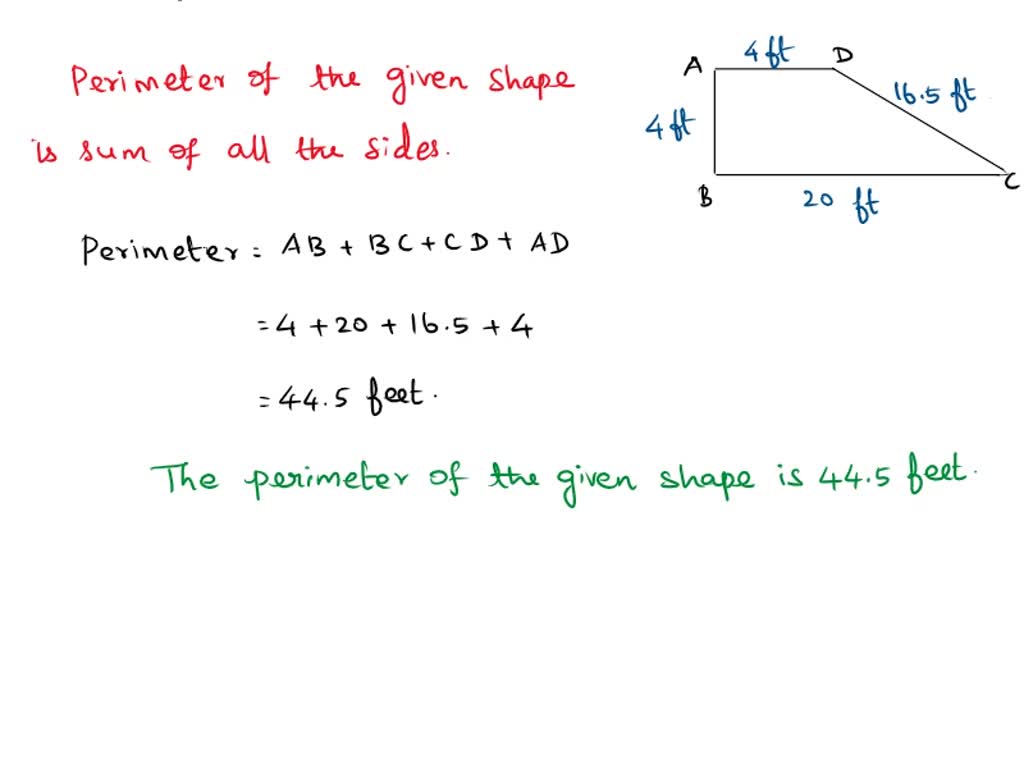 Perimeter of the given shape
is sum of all the sides.
A 4 ft D
16.5 ft
4 ft
B 20 ft C
Perimeter = AB + BC + CD + AD
= 4 + 20 + 16.5 + 4
= 44.5 feet.
The perimeter of the given shape is 44.5 feet.